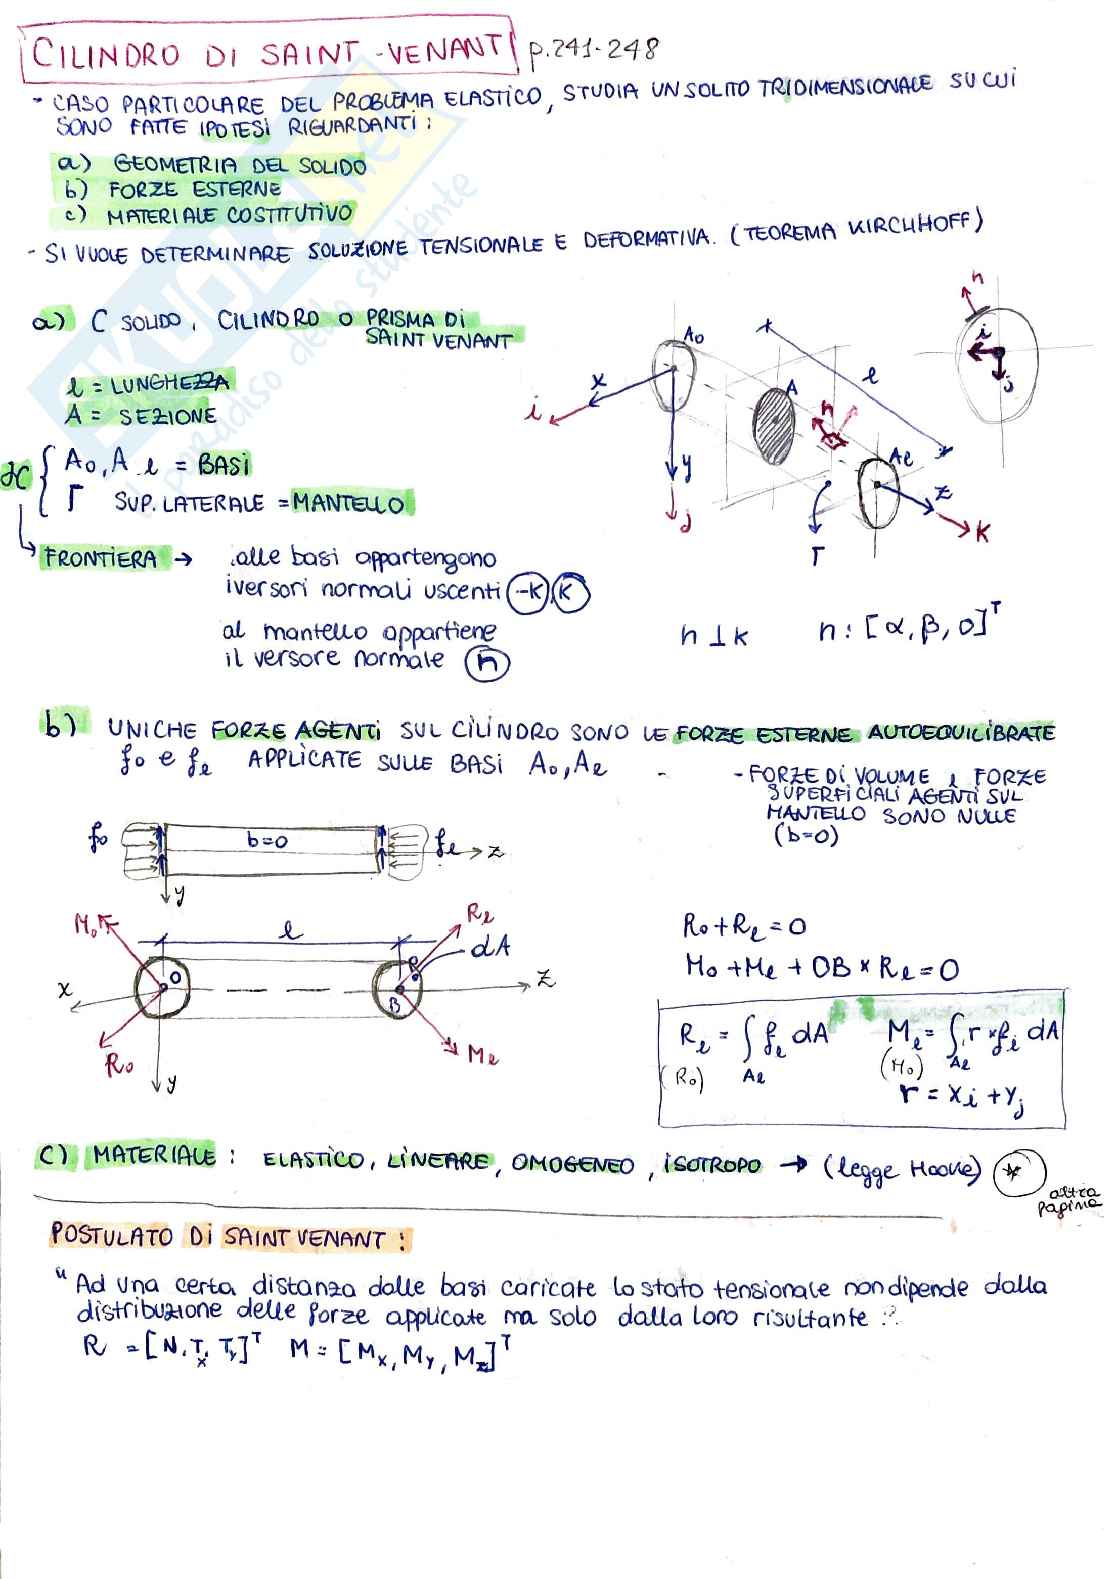 CILINDRO DI SAINT-VENANT p.241-248
- CASO PARTICOLARE DEL PROBLEMA ELASTICO, STUDIA UN SOLITO TRIDIMENSIONALE SU CUI
SONO FATTE IPOTESI RIGUARDANTI:
a) GEOMETRIA DEL SOLIDO
b) FORZE ESTERNE
c) MATERIALE COSTITUTIVO
- SI VUOLE DETERMINARE SOLUZIONE TENSIONALE E DEFORMATIVA. (TEOREMA KIRCHHOFF)
a) C SOLIDO, CILINDRO O PRISMA DI
SAINT VENANT
l = LUNGHEZZA
A = SEZIONE
A₀, A l = BASI
Γ SUP. LATERALE = MANTELLO
FRONTIERA → .alle basi appartengono
i versori normali uscenti -K, K
al mantello appartiene
il versore normale n
A₀
x
i
y
j
A
n
l
Aℓ
z
K
Γ
n
i
j
n ⊥ k n: [α, β, 0]ᵀ
b) UNICHE FORZE AGENTI SUL CILINDRO SONO LE FORZE ESTERNE AUTOEQUILIBRATE
f₀ e fℓ APPLICATE SULLE BASI A₀, Aℓ
- FORZE DI VOLUME e FORZE
SUPERFICIALI AGENTI SUL
MANTELLO SONO NULLE
(b=0)
f₀ b=0 fℓ z
y
M₀ l Rℓ
dA
x O B z
R₀ y Mℓ
R₀+Rℓ = 0
M₀ + Mℓ + OB × Rℓ = 0
Rℓ = ∫ fℓ dA Mℓ = ∫ r × fℓ dA
(R₀) Aℓ (M₀) Aℓ
r = xi + yj
C) MATERIALE: ELASTICO, LINEARE, OMOGENEO, ISOTROPO → (legge Hooke) *
altra
pagina
POSTULATO DI SAINT VENANT:
"Ad una certa distanza dalle basi caricate lo stato tensionale non dipende dalla
distribuzione delle forze applicate ma solo dalla loro risultante."
R = [N, Tx, Ty]ᵀ M = [Mx, My, Mz]ᵀ